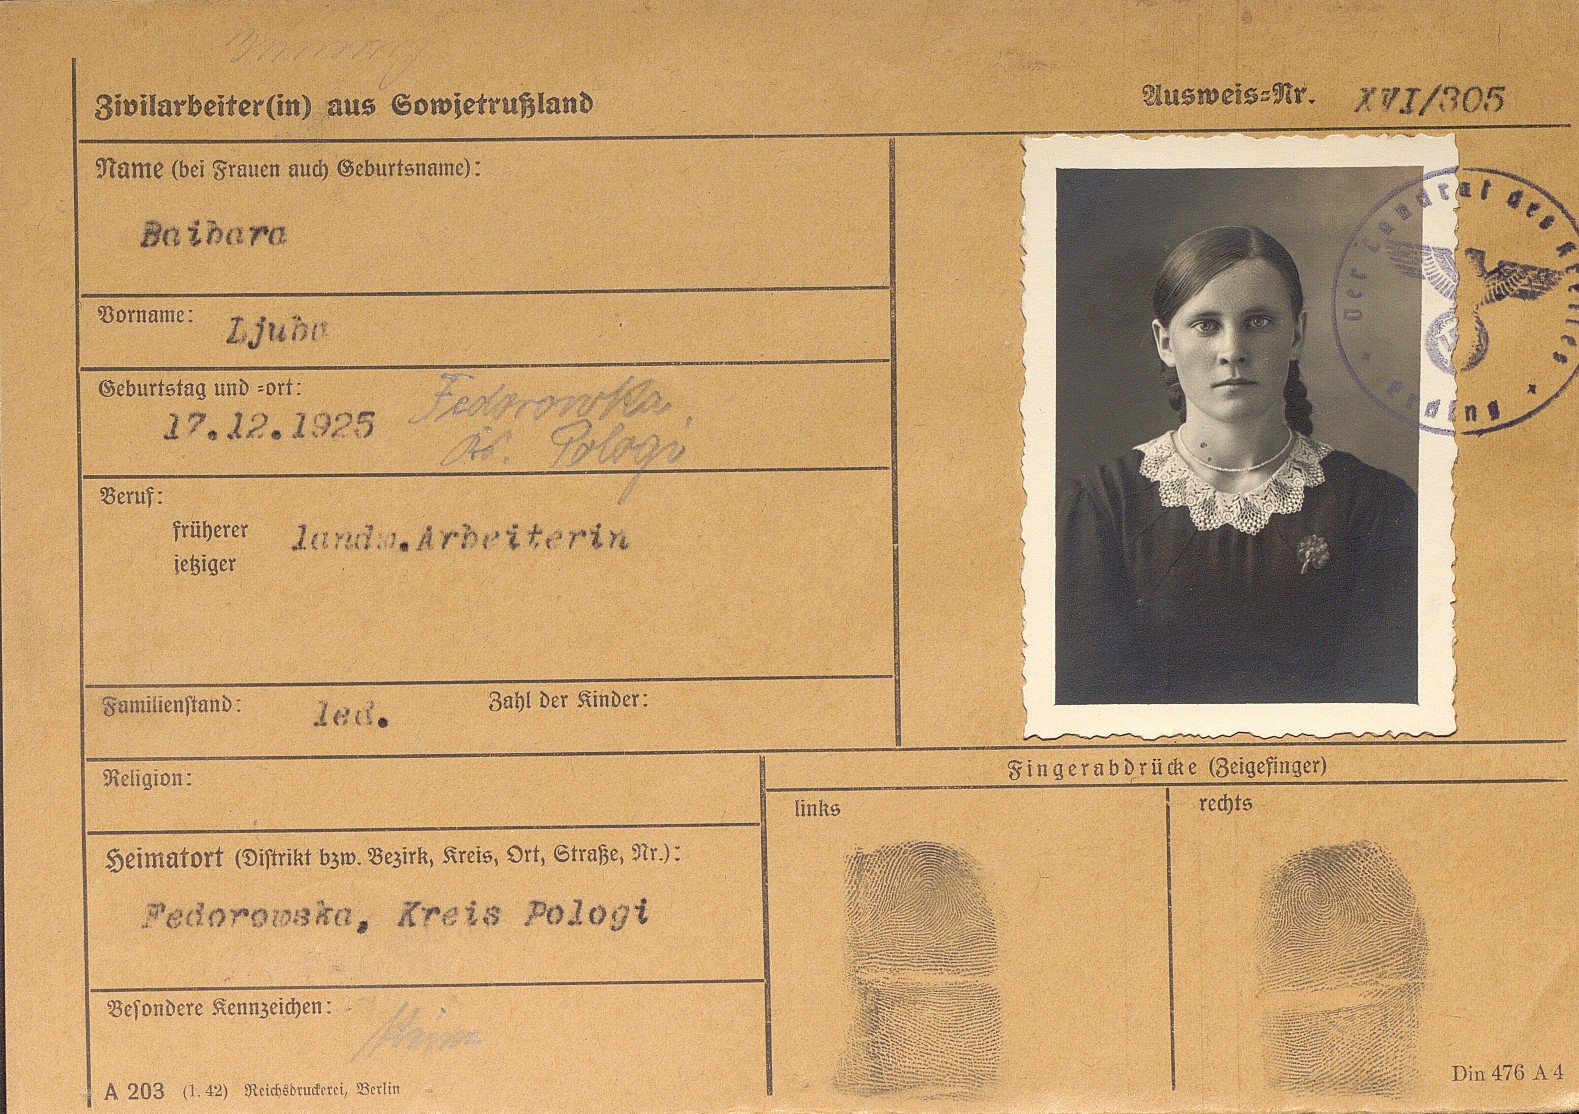 Zivilarbeiter(in) aus Sowjetrußland
Ausweis-Nr. XVI/305
Name (bei Frauen auch Geburtsname):
Baibara
Vorname: Ljuba
Geburtstag und -ort:
17.12.1925 Fedorowka
Ks. Pologi
Beruf:
früherer landw.Arbeiterin
jetziger
Familienstand: led. Zahl der Kinder:
Religion:
Heimatort (Distrikt bzw. Bezirk, Kreis, Ort, Straße, Nr.):
Fedorowska, Kreis Pologi
Besondere Kennzeichen:
A 203 (1. 42) Reichsdruckerei, Berlin
Der Landrat des Kreises
* Erding *
Fingerabdrücke (Zeigefinger)
links
rechts
Din 476 A 4